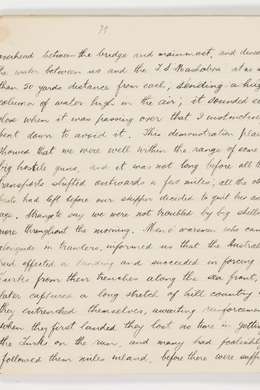 71
overhead between the bridge and mainmast, and
the water between us and the T.S. at
than 50 yards distance from each, sending a huge
column of water high in the air; it sounded so
close when it was passing over that I instinctively
bent down to avoid it. This demonstration
showed that we were well within the range of some
big hostile guns, and it was not long before all
transports shifted outwards a few miles; all the
boats had left before our skipper decided to quit
ago. Strange to say we were not troubled by big shells
more throughout the morning. Men o' warsmen who came
alongside in trawlers, informed us that the Austral
had effected a landing and succeeded in forcing
Turks from their trenches along the sea front,
later captured a long stretch of hill country
they entrenched themselves, awaiting reinforcements
when they first landed they lost no time in getting
the Turks on the run, and many had
followed them miles inland, before there were suff